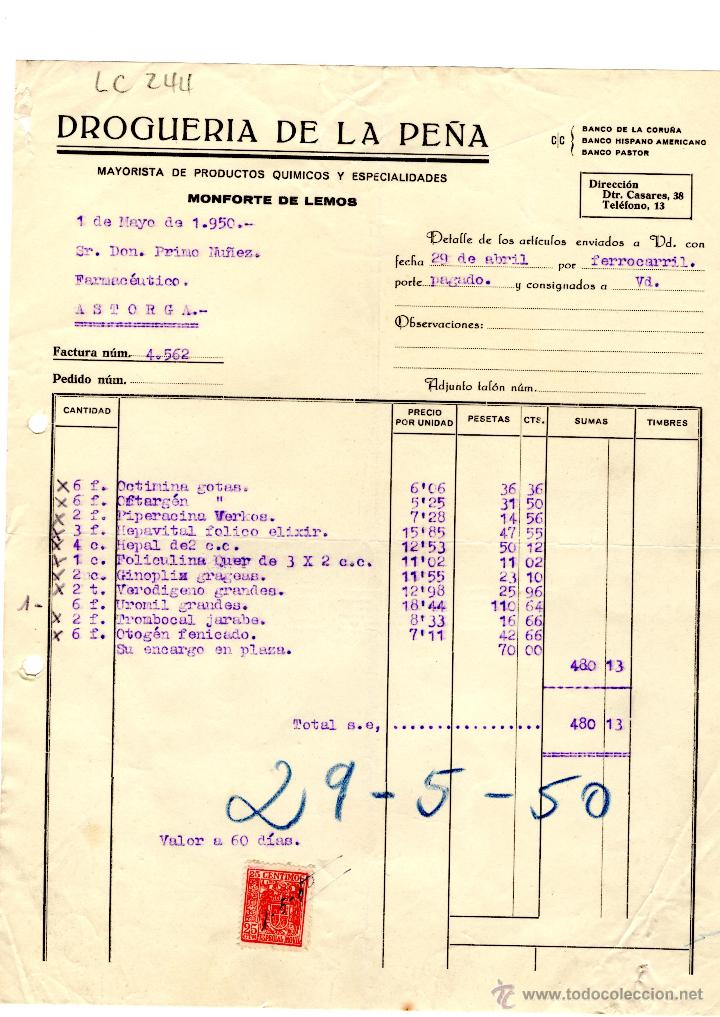 LC 244
DROGUERIA DE LA PEÑA
MAYORISTA DE PRODUCTOS QUIMICOS Y ESPECIALIDADES
MONFORTE DE LEMOS
C/C { BANCO DE LA CORUÑA
BANCO HISPANO AMERICANO
BANCO PASTOR
Dirección
Dtr. Casares, 38
Teléfono, 13
1 de Mayo de 1.950.-
Sr. Don. Primo Nuñez.
Farmacéutico.
ASTORGA.-
Detalle de los artículos enviados a Vd. con
fecha 29 de abril por ferrocarril.
porte pagado. y consignados a Vd.
Observaciones:
Factura núm. 4.562
Pedido núm.
Adjunto talón núm.
CANTIDAD PRECIO POR UNIDAD PESETAS CTS. SUMAS TIMBRES
x 6 f. Octimina gotas. 6'06 36 36
x 6 f. Oftargén " 5'25 31 50
x 2 f. Piperacina Verkos. 7'28 14 56
x 3 f. Hepavital folico elixir. 15'85 47 55
x 4 c. Hepal de2 c.c. 12'53 50 12
x 1 c. Foliculina Quer de 3 X 2 c.c. 11'02 11 02
x 2 c. Ginoplix grageas. 11'55 23 10
x 2 t. Verodigeno grandes. 12'98 25 96
1- 6 f. Uromil grandes. 18'44 110 64
x 2 f. Trombocal jarabe. 8'33 16 66
x 6 f. Otogén fenicado. 7'11 42 66
Su encargo en plaza. 70 00
480 13
Total s.e, .................. 480 13
29-5-50
Valor a 60 días.
25 CENTIMOS
25
ESPECIAL MOVIL
todocoleccion.net